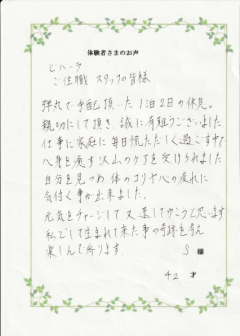 体験者さまのお声
ヒハーラ
ご住職 スタッフの皆様
頂いた1泊2日の休息。
親切にして頂き、誠に有難うございました
仕事に家庭に毎日慌ただしく過ごす中で
心身を癒す沢山のケアを受けられました
自分を見つめ体のコリや心の疲れに
気付く事が出来ました。
元気をチャージして又進して歩こうと思います
私として生まれて来た事の奇跡を考え
楽しんで参ります
S 様
42 才